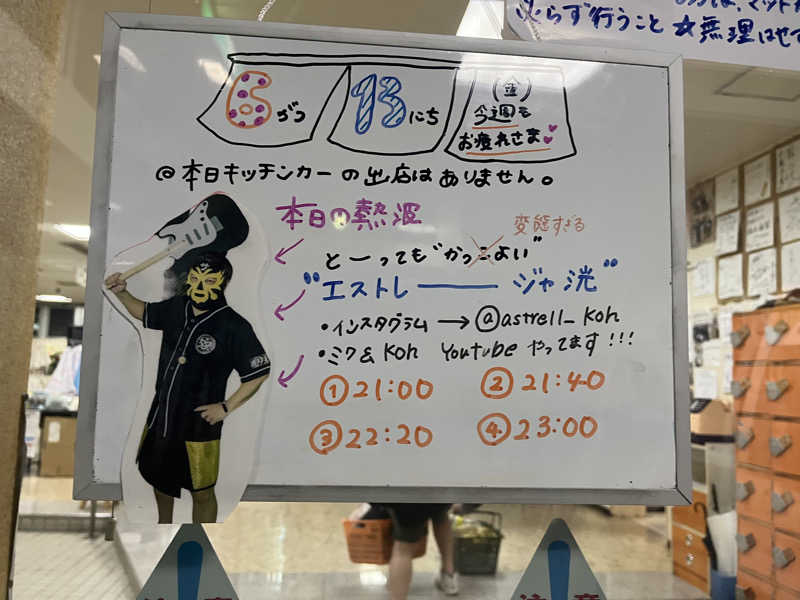 必らず行うこと ☆無理はせず
6がつ
13にち
(金)
今週も
お疲れさま
@本日キッチンカーの出店はありません。
本日の熱波
変態すぎる
とーっても"かっこよい"
"エストレ――ジャ洸"
・インスタグラム→@astrell_Koh
・ミワ&Koh Youtubeやってます!!!
①21:00 ②21:40
③22:20 ④23:00
注意
注意